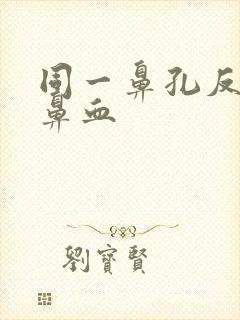 同一鼻孔反
鼻血
劉寶賢